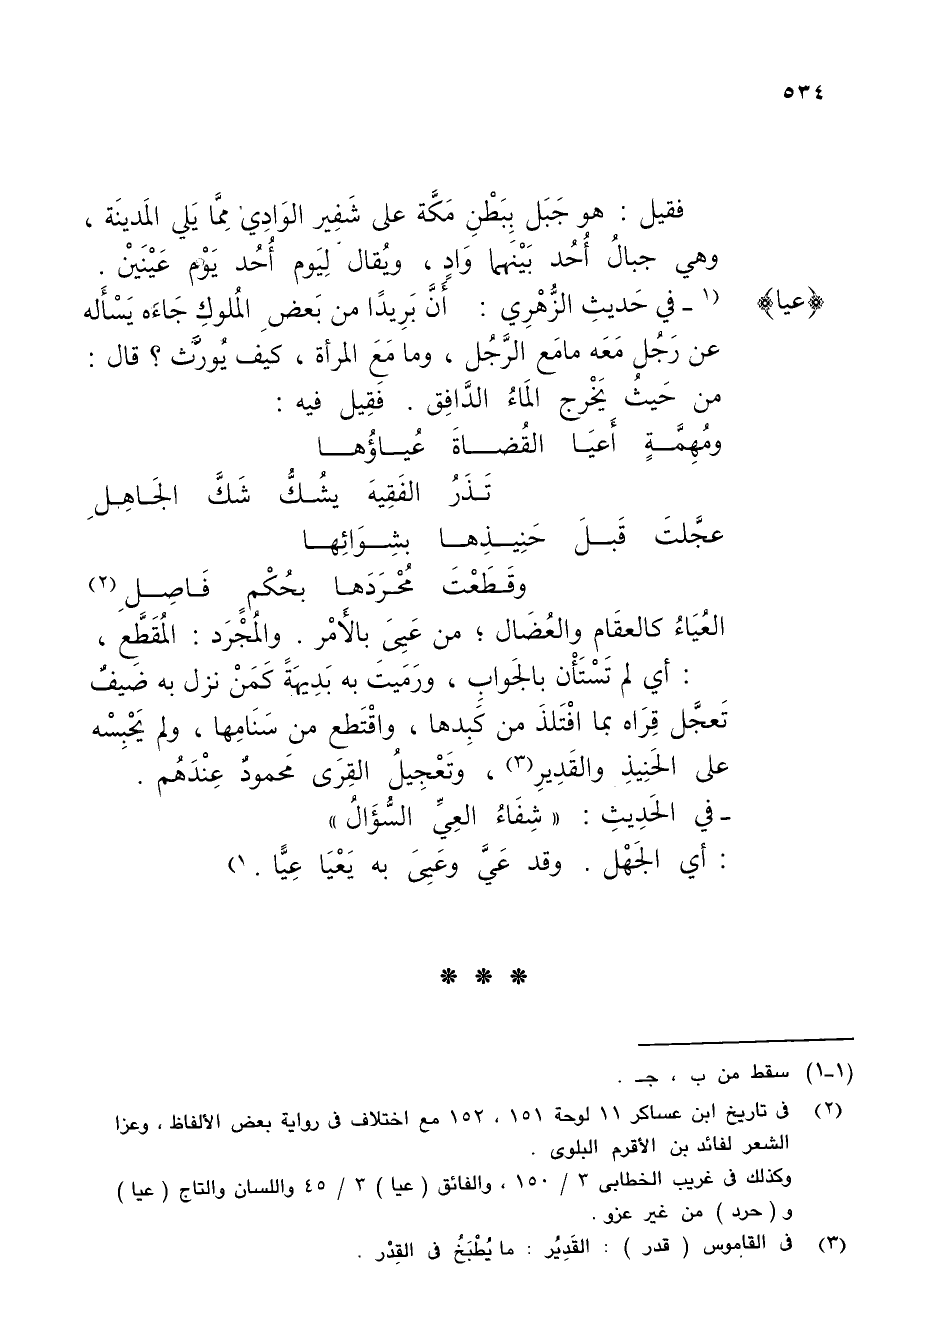 ٥٣٤
فقيل : هو جَبَل بِبَطْنِ مَكَّة على شَفِير الوَادِي مِمَّا يَلي المَدينَة ،
وهي جبالُ أُحُد بَيْنَهما وَادٍ ، ويُقال لِيَوم أُحُد يَوْم عَيْنَيْن .
﴿عيا﴾ (١ـ في حَديثِ الزُّهْرِي : أَنَّ بَرِيدًا من بَعضِ المُلوكِ جَاءَه يَسْأَله
عن رَجُل مَعَه مامَع الرَّجُل ، وما مَعَ المرأة ، كيف يُورَّث ؟ قال :
من حَيثُ يَخْرج المَاءُ الدَّافِق . فَقِيل فيه :
ومُهِمَّــةٍ أَعيَـا القُضــاةَ عُيــاؤُهــا
تَــذَرُ الفَقِيهَ يشُــكُّ شَكَّ الجَـاهِـلِ
عجَّلتَ قَبـلَ حَنِيــذِهــا بشِــوَائِهــا
وقَـطَعْتَ مُحْـرَدَهـا بحُكْمٍ فَـاصِـلِ (٢)
العُيَاءُ كالعقَام والعُضَال ؛ من عَيِىَ بالأَمْر . والمُجْرَد : المُقَطَّع ،
: أي لم تَسْتَأْن بالجَوابِ ، ورَمَيتَ به بَدِيهَةً كَمَنْ نزل به ضَيفٌ
تَعجَّل قِرَاه بما افْتَلذَ من كَبِدها ، واقْتَطع من سَنَامِها ، ولم يَحْبِسْه
على الحَنِيذِ والقَدِيرِ(٣) ، وتَعْجِيلُ القِرَى مَحمودٌ عِنْدَهُم .
ـ في الحَدِيثِ : « شِفَاءُ العِيِّ السُّؤَالُ »
: أي الجَهْل . وقد عَيَّ وعَيِىَ به يَعْيَا عِيًّا . ١)
* * *
(١ـ١) سقط من ب ، جـ .
(٢) فى تاريخ ابن عساكر ١١ لوحة ١٥١ ، ١٥٢ مع اختلاف فى رواية بعض الألفاظ ، وعزا
الشعر لفائد بن الأقرم البلوى .
وكذلك فى غريب الخطابى ٣ / ١٥٠ ، والفائق ( عيا ) ٣ / ٤٥ واللسان والتاج ( عيا )
و ( حرد ) من غير عزو .
(٣) فى القاموس ( قدر ) : القَدِيُر : ما يُطْبَخُ فى القِدْر .